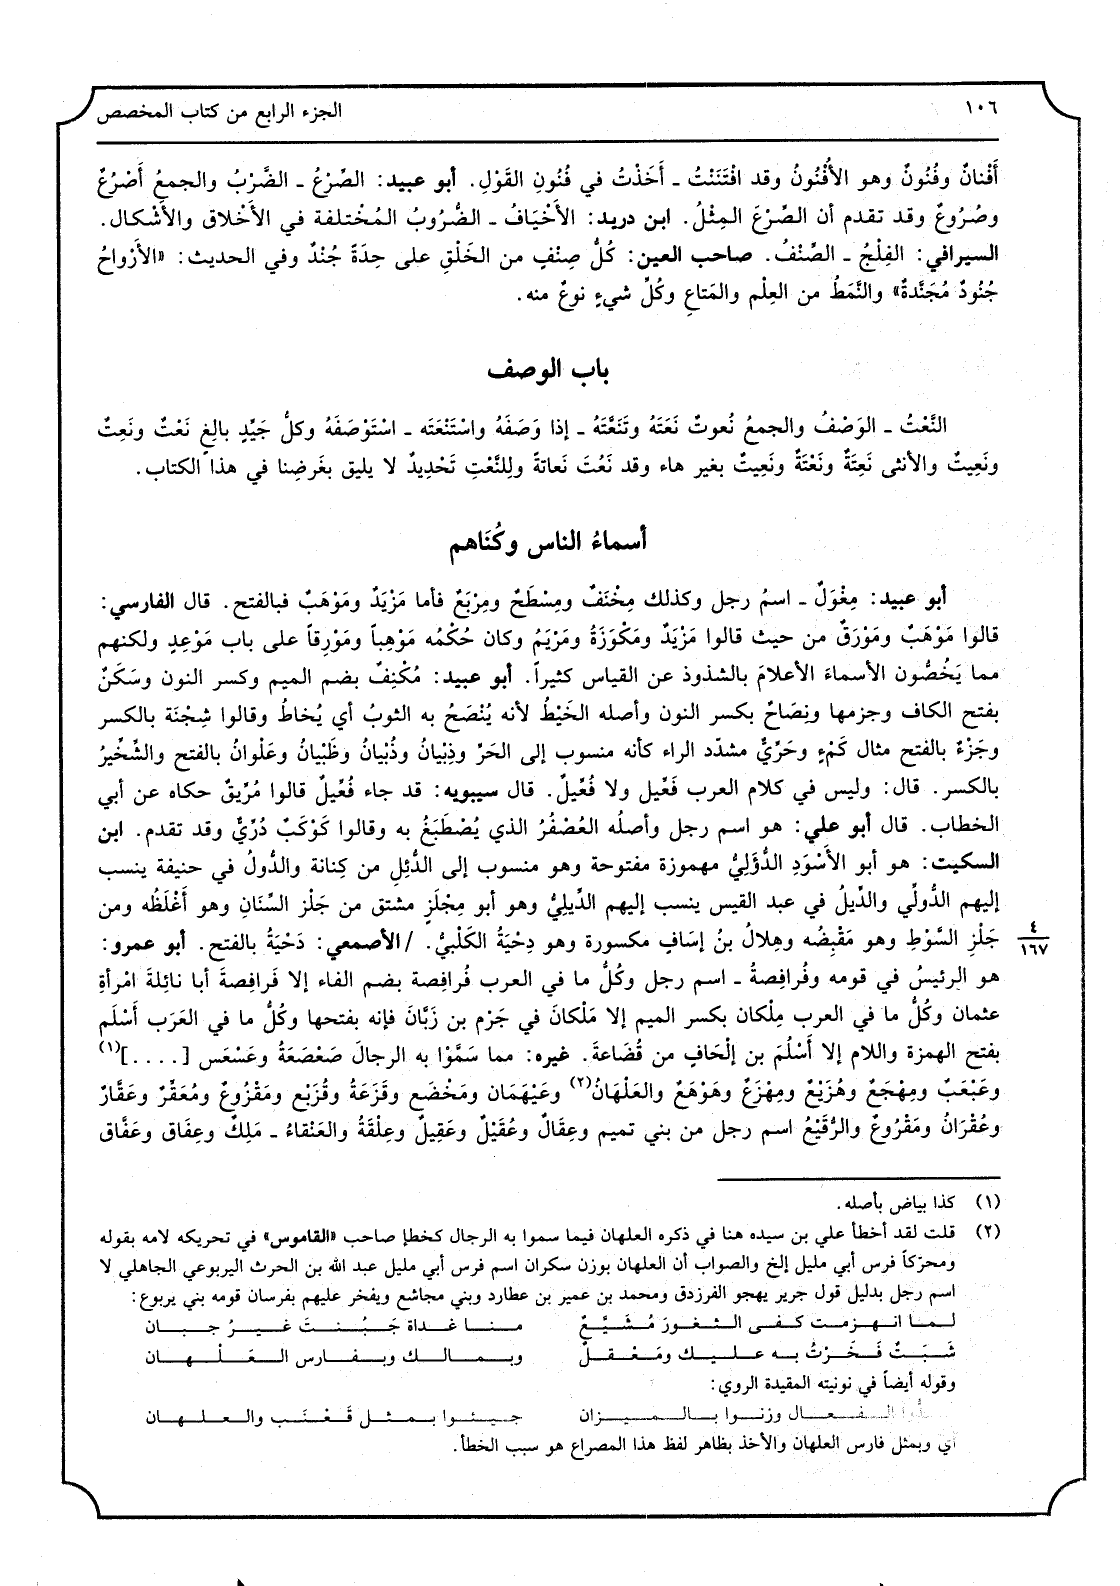 ١٠٦
الجزء الرابع من كتاب المخصص
أَفْنانٌ وفُنُونٌ وهو الأُفْنُونُ وقد افْتَنَنْتُ ـ أَخَذْتُ في فُنُونِ القَوْلِ. أبو عبيد: الصِّرْعُ ـ الضَّرْبُ والجمعُ أَصْرُعٌ
وصُرُوعٌ وقد تقدم أن الصِّرْعَ المِثْلُ. ابن دريد: الأَخْيَافُ ـ الضُّرُوبُ المُخْتلفة في الأَخْلاق والأَشْكال.
السيرافي: الفِلْجُ ـ الصِّنْفُ. صاحب العين: كُلُّ صِنْفٍ من الخَلْقِ على حِدَةً جُنْدٌ وفي الحديث: «الأَرْواحُ
جُنُودٌ مُجَنَّدةٌ» والنَّمَطُ من العِلْم والمَتاعِ وكُلِّ شيءٍ نوعٌ منه.
باب الوصف
النَّعْتُ ـ الوَصْفُ والجمعُ نُعوتٌ نَعَتَهُ وتَنَعَّتَهُ ـ إذا وَصَفَهُ واسْتَنْعَتَه ـ اسْتَوْصَفَهُ وكلُّ جَيِّدٍ بالِغٍ نَعْتٌ ونَعِتٌ
ونَعِيتٌ والأنثى نَعِتَةٌ ونَعْتَةٌ ونَعِيتٌ بغير هاء وقد نَعُتَ نَعاتةً وللِنَّعْتِ تَحْدِيدٌ لا يليق بغَرضِنا في هذا الكتاب.
أسماءُ الناس وكُنَاهم
أبو عبيد: مِغْوَلٌ ـ اسمُ رجل وكذلك مِخْنَفٌ ومِسْطَحٌ ومِرْبَعٌ فأما مَزْيَدٌ ومَوْهَبٌ فبالفتح. قال الفارسي:
قالوا مَوْهَبٌ ومَوْرَقٌ من حيث قالوا مَزْيَدٌ ومَكْوَزَةُ ومَرْيَمُ وكان حُكْمُه مَوْهِباً ومَوْرِقاً على باب مَوْعِدٍ ولكنهم
مما يَخُصُّون الأسماءَ الأعلامَ بالشذوذ عن القياس كثيراً. أبو عبيد: مُكْنِفٌ بضم الميم وكسر النون وسَكَنٌ
بفتح الكاف وجزمها ونِصَاحٌ بكسر النون وأصله الخَيْطُ لأنه يُنْصَحُ به الثوبُ أي يُخاطُ وقالوا شِجْنَة بالكسر
وجَزْءٌ بالفتح مثال كَمْءٍ وحَرِّيٌّ مشدّد الراء كأنه منسوب إلى الحَرِّ وذِبْيانُ وذُبْيانُ وظَبْيانُ وعَلْوانُ بالفتح والشِّخِّيرُ
بالكسر. قال: وليس في كلام العرب فَعِّيل ولا فُعِّيلٌ. قال سيبويه: قد جاء فُعِّيلٌ قالوا مُرِّيقٌ حكاه عن أبي
الخطاب. قال أبو علي: هو اسم رجل وأصلُه العُصْفُرُ الذي يُصْطَبَغُ به وقالوا كَوْكَبٌ دُرِّيٌّ وقد تقدم. ابن
السكيت: هو أبو الأَسْوَدِ الدُّؤَلِيُّ مهموزة مفتوحة وهو منسوب إلى الدُّئِلِ من كِنانة والدُّولُ في حنيفة ينسب
إليهم الدُّولِّي والدِّيلُ في عبد القيس ينسب إليهم الدِّيلِيُّ وهو أبو مِجْلَزٍ مشتق من جَلْز السِّنَانِ وهو أَغْلَظُه ومن
٤
١٦٧
جَلْزِ السَّوْطِ وهو مَقْبِضُه وهِلالُ بنُ إسَافٍ مكسورة وهو دِحْيَةُ الكَلْبيُّ. /الأصمعي: دَحْيَةُ بالفتح. أبو عمرو:
هو الرئيسُ في قومه وفُرافِصةُ ـ اسم رجل وكُلُّ ما في العرب فُرافِصة بضم الفاء إلا فَرافِصةَ أبا نائِلةَ امْرأةِ
عثمان وكُلُّ ما في العرب مِلْكان بكسر الميم إلا مَلْكانَ في جَرْم بن زَبَّانَ فإنه بفتحها وكُلُّ ما في العَرَب أَسْلَم
بفتح الهمزة واللام إلا أَسْلُمَ بن إلْحَافِ من قُضَاعةَ. غيره: مما سَمَّوْا به الرجالَ صَعْصَعَةُ وعَسْعَس [....](١)
وعَبْعَبٌ ومِهْجَعٌ وهُزَيْعٌ ومِهْزَعٌ وهَوْهَعٌ والعَلْهَانُ(٢) وعَيْهَمَان ومَخْضَع وقَزَعَةُ وقُزَيْع ومَقْزُوعٌ ومُعَقِّرٌ وعَقَّارٌ
وعُقْرَانُ ومَقْرُوعٌ والرُّقَيْعُ اسم رجل من بني تميم وعِقَالٌ وعُقَيْلٌ وعَقِيلٌ وعِلْقَةُ والعَنْقاءُ ـ مَلِكٌ وعِفَاق وعَفَّاق
(١) كذا بياض بأصله.
(٢) قلت لقد أخطأ علي بن سيده هنا في ذكره العلهان فيما سموا به الرجال كخطإ صاحب «القاموس» في تحريكه لامه بقوله
ومحرّكاً فرس أبي مليل إلخ والصواب أن العلهان بوزن سكران اسم فرس أبي مليل عبد الله بن الحرث اليربوعي الجاهلي لا
اسم رجل بدليل قول جرير يهجو الفرزدق ومحمد بن عمير بن عطارد وبني مجاشع ويفخر عليهم بفرسان قومه بني يربوع:
لـمـا انـهـزمـت كـفـى الـثـغـورَ مُـشَـيَّـعٌ مـنـا غـداة جَـبُـنـتَ غـيـرُ جـبـان
شَـبَـتٌ فَـخَـرْتُ بـه عـلـيـك ومَـعْـقـلٌ وبـمـالـك وبـفـارس الـعَـلْـهـان
وقوله أيضاً في نونيته المقيدة الروي:
الـفـعـال وزنـوا بـالـمـيـزان جـيـئـوا بـمـثـل قَـعْـنَـب والـعـلـهـان
أي وبمثل فارس العلهان والأخذ بظاهر لفظ هذا المصراع هو سبب الخطأ.